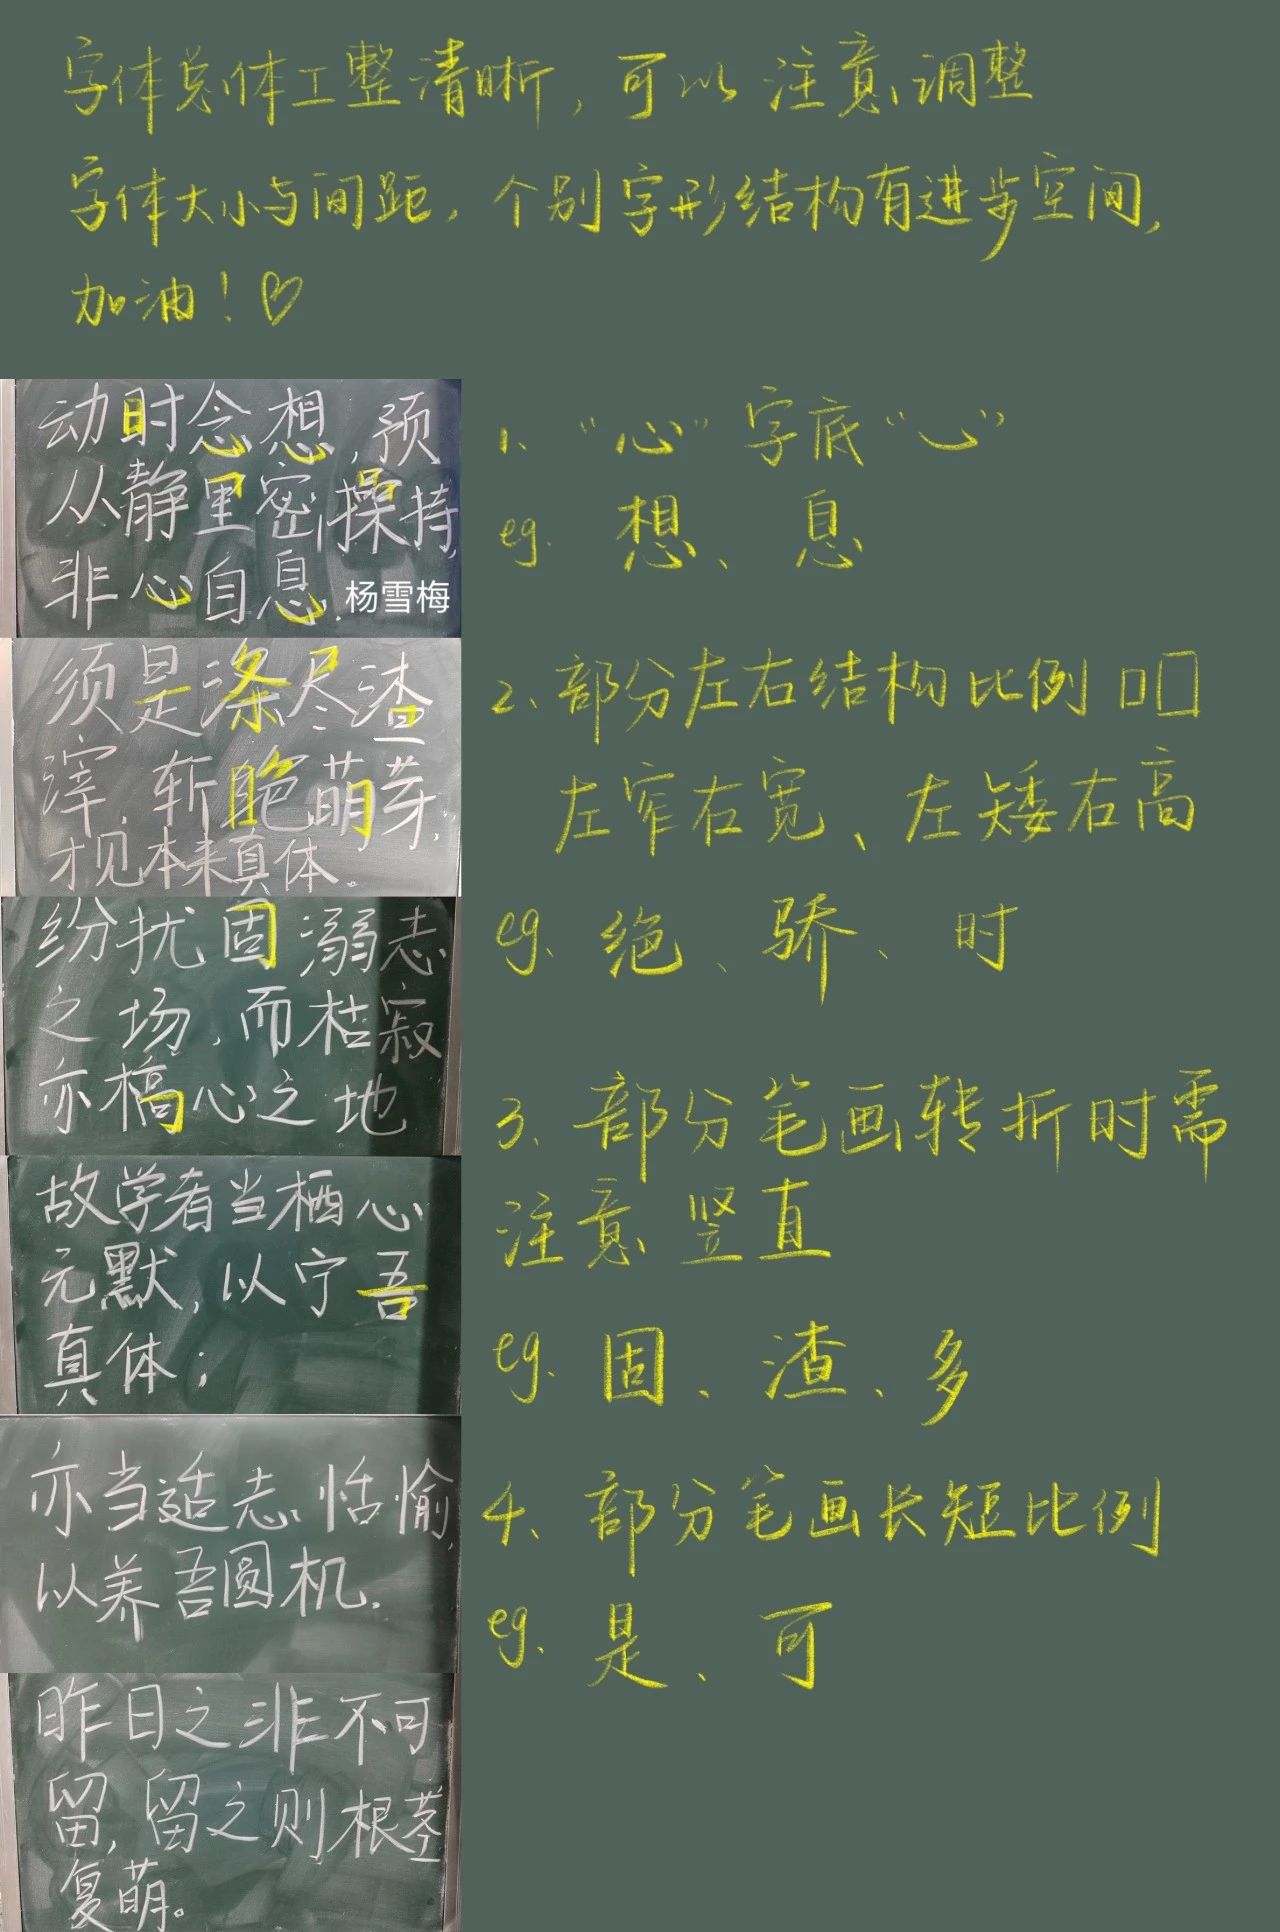 字体总体工整清晰，可以注意调整
字体大小与间距，个别字形结构有进步空间，
加油！♡
动时念想，预
从静里密操持，
非心自息.
杨雪梅
须是涤尽渣
滓，斩绝萌芽，
才见本来真体。
纷扰固溺志
之场，而枯寂
亦槁心之地
故学者当栖心
元默，以宁吾
真体；
亦当适志恬愉，
以养吾圆机.
昨日之非不可
留，留之则根茎
复萌。
1、“心”字底“心”
eg. 想、息
2、部分左右结构比例
左窄右宽、左矮右高
eg. 绝、骄、时
3、部分笔画转折时需
注意竖直
eg. 固、渣、多
4、部分笔画长短比例
eg. 是、可